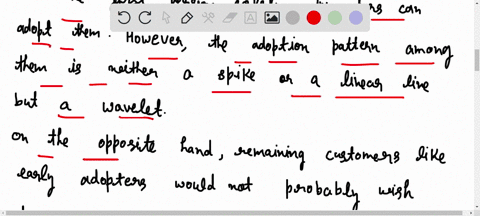 can
adopt them. However, the adoption pattern among
them is neither a spike or a linear live
but a wavelet.
on the opposite hand, remaining customers like
early adopters would not probably wish